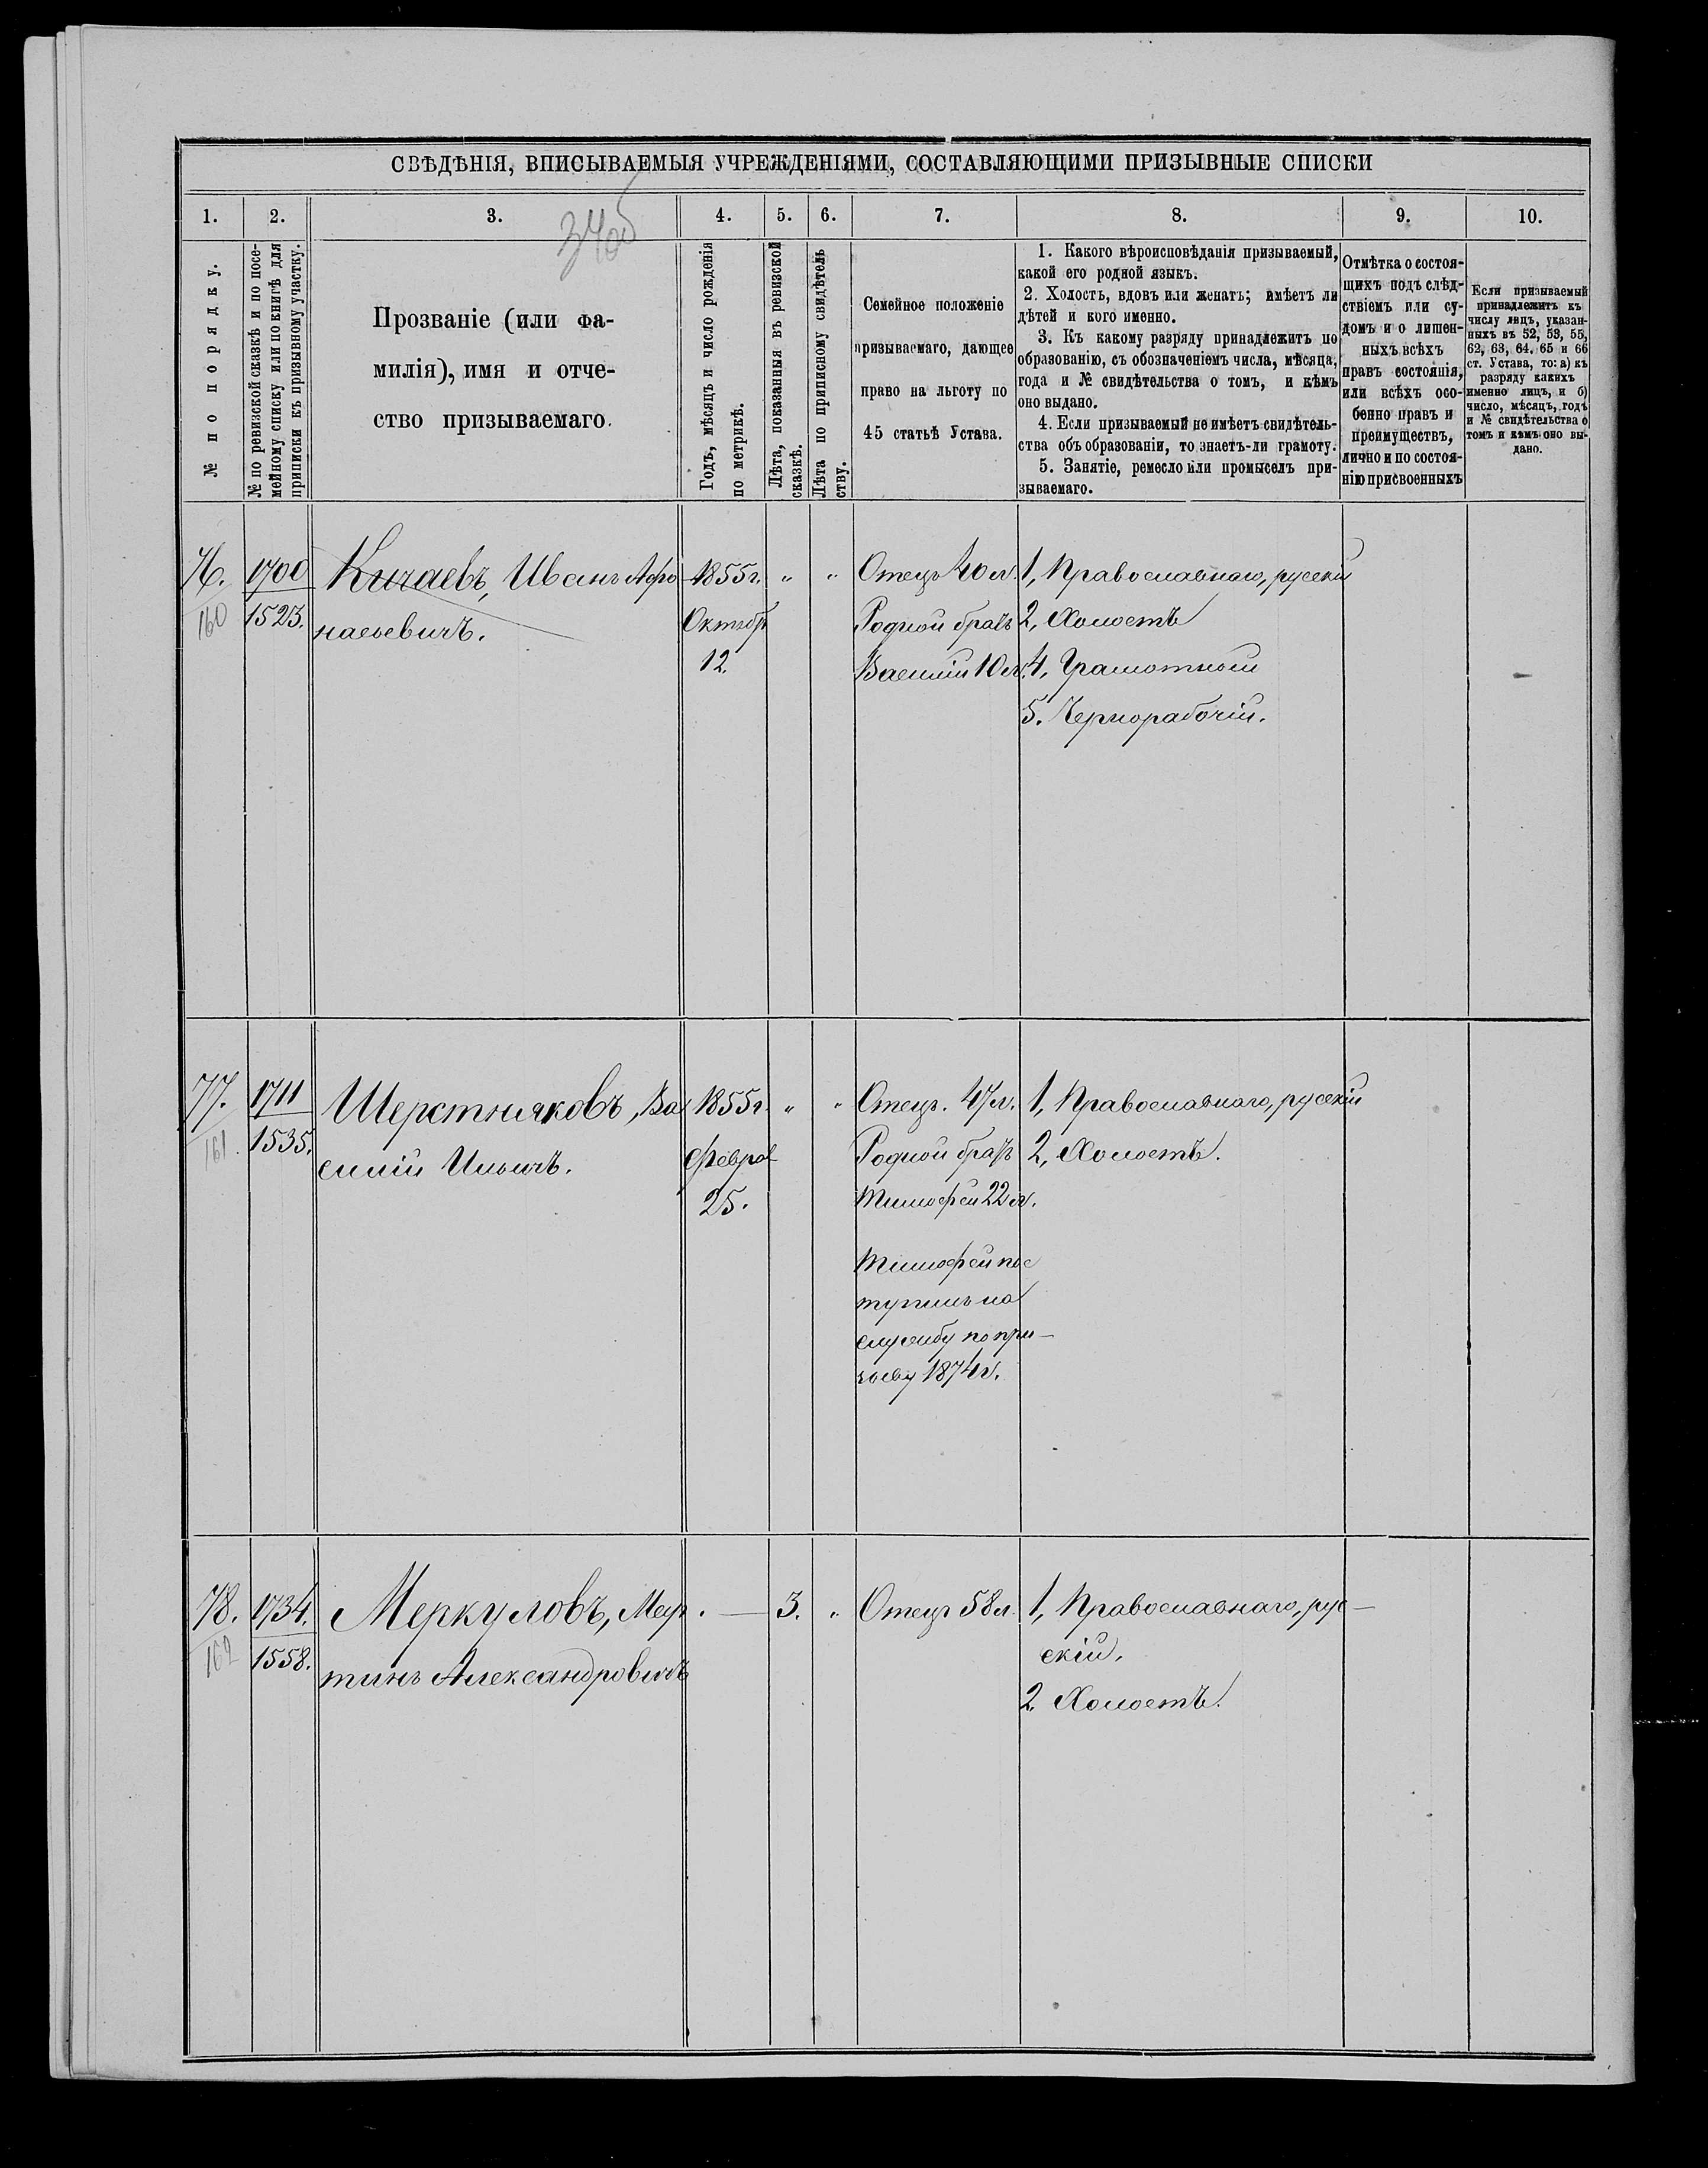 СВѢДѢНІЯ, ВПИСЫВАЕМЫЯ УЧРЕЖДЕНІЯМИ, СОСТАВЛЯЮЩИМИ ПРИЗЫВНЫЕ СПИСКИ
1. 2. 3. 4. 5. 6. 7. 8. 9. 10.
№ по порядку.
№ по ревизской сказкѣ и по посе-
мейному списку или по книгѣ для
приписки къ призывному участку.
Прозваніе (или фа-
милія), имя и отче-
ство призываемаго.
Годъ, мѣсяцъ и число рожденія
по метрикѣ.
Лѣта, показанныя въ ревизской
сказкѣ.
Лѣта по приписному свидѣтель
ству.
Семейное положеніе
призываемаго, дающее
право на льготу по
45 статьѣ Устава.
1. Какого вѣроисповѣданія призываемый,
какой его родной языкъ.
2. Холостъ, вдовъ или женатъ; имѣетъ ли
дѣтей и кого именно.
3. Къ какому разряду принадлежитъ по
образованію, съ обозначеніемъ числа, мѣсяца,
года и № свидѣтельства о томъ, и кѣмъ
оно выдано.
4. Если призываемый не имѣетъ свидѣтель-
ства объ образованіи, то знаетъ-ли грамоту.
5. Занятіе, ремесло или промыселъ при-
зываемаго.
Отмѣтка о состоя-
щихъ подъ слѣд-
ствіемъ или су-
домъ и о лишен-
ныхъ всѣхъ
правъ состоянія,
или всѣхъ осо-
бенно правъ и
преимуществъ,
лично и по состоя-
нію присвоенныхъ
Если призываемый
принадлежитъ къ
числу лицъ, указан-
ныхъ въ 52, 53, 55,
62, 63, 64, 65 и 66
ст. Устава, то: а) къ
разряду какихъ
именно лицъ, и б)
число, мѣсяцъ, годъ
и № свидѣтельства о
томъ и кѣмъ оно вы-
дано.
76.
160
1700
1523.
Кичаевъ, Иванъ Афо
насьевичъ.
1855 г.
Октябр
12.
" "
Отецъ 40 л.
Родной братъ
Василій 10 л.
1, Православнаго, русскій
2, Холостъ
4, Грамотный
5. Чернорабочій.
77.
161.
1711
1535.
Шерстняковъ, Ва
силій Ильичъ.
1855 г.
Феврал
25.
" "
Отецъ. 47 л.
Родной братъ
Тимофей 22 л.
Тимофей пос
тупилъ на
службу по при-
зыву 1874 г.
1, Православнаго, русскій
2, Холостъ.
78.
162
1734.
1558.
Меркуловъ, Мар
тинъ Александровичъ
. — 3. "
Отецъ 58 л.
1, Православнаго, рус-
скій.
2. Холостъ.